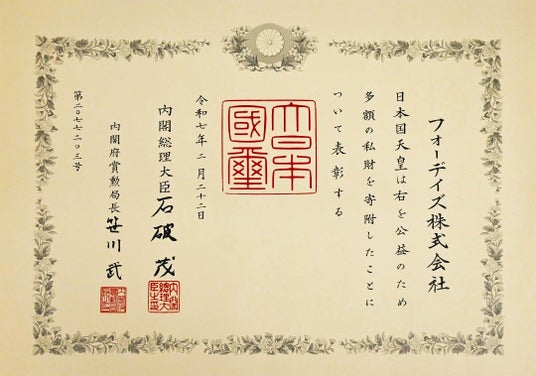 フォーデイズ株式会社
日本国天皇は右を公益のため
多額の私財を寄附したことに
ついて表彰する
大日本國璽
令和七年二月二十二日
内閣総理大臣 石破茂
内閣総理大臣之印
内閣府賞勲局長 笹川武
第二〇七七二〇三号